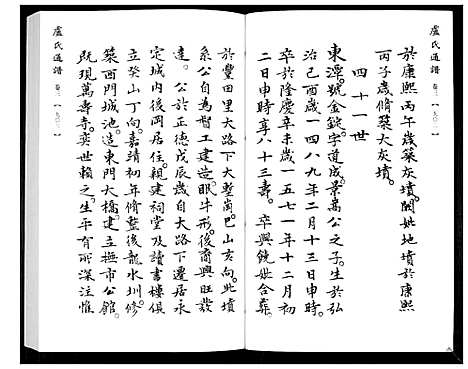 盧氏通譜
卷三
於康熙丙午歲築灰墳。閻妣地墳於康熙
丙子歲脩築大灰墳。
四十一世
東潭號金錠字道成景嵩公之子。生於弘
治己酉歲一四八九年二月十三日申時。
卒於隆慶辛未歲一五七一年十二月初
二日申時享八十三壽。卒興饒妣合葬。
於豐田里大路下大塹崗巴山亥向。此墳
系公自為督工建造眠牛形。後裔興旺發
達。公於正德戊辰歲自大路下遷居永
定城内後岡居住。親建祠堂及讀書樓俱
立癸山丁向。嘉靖初年脩整後龍水圳。修
築西門城池。造東門大橋。建立撫市公館。
既現萬壽寺。奕世賴之。生平有所深注惟
盧氏通譜
卷三